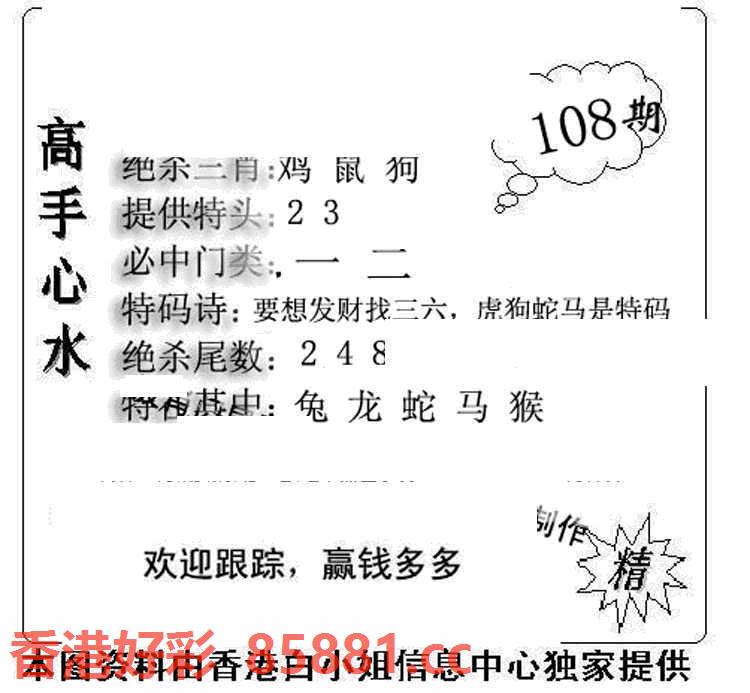 108期
高手心水
绝杀三肖:鸡 鼠 狗
提供特头:2 3
必中门类:一 二
特码诗:要想发财找三六,虎狗蛇马是特码
绝杀尾数:2 4 8
特在其中:兔 龙 蛇 马 猴
制作
精
欢迎跟踪,赢钱多多
香港好彩 85881.cc
本图资料由香港白小姐信息中心独家提供